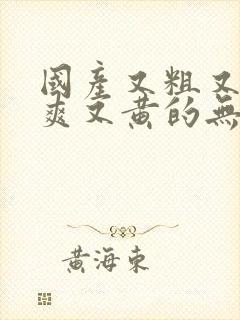 國產又粗又
爽又黄的無
黄海東